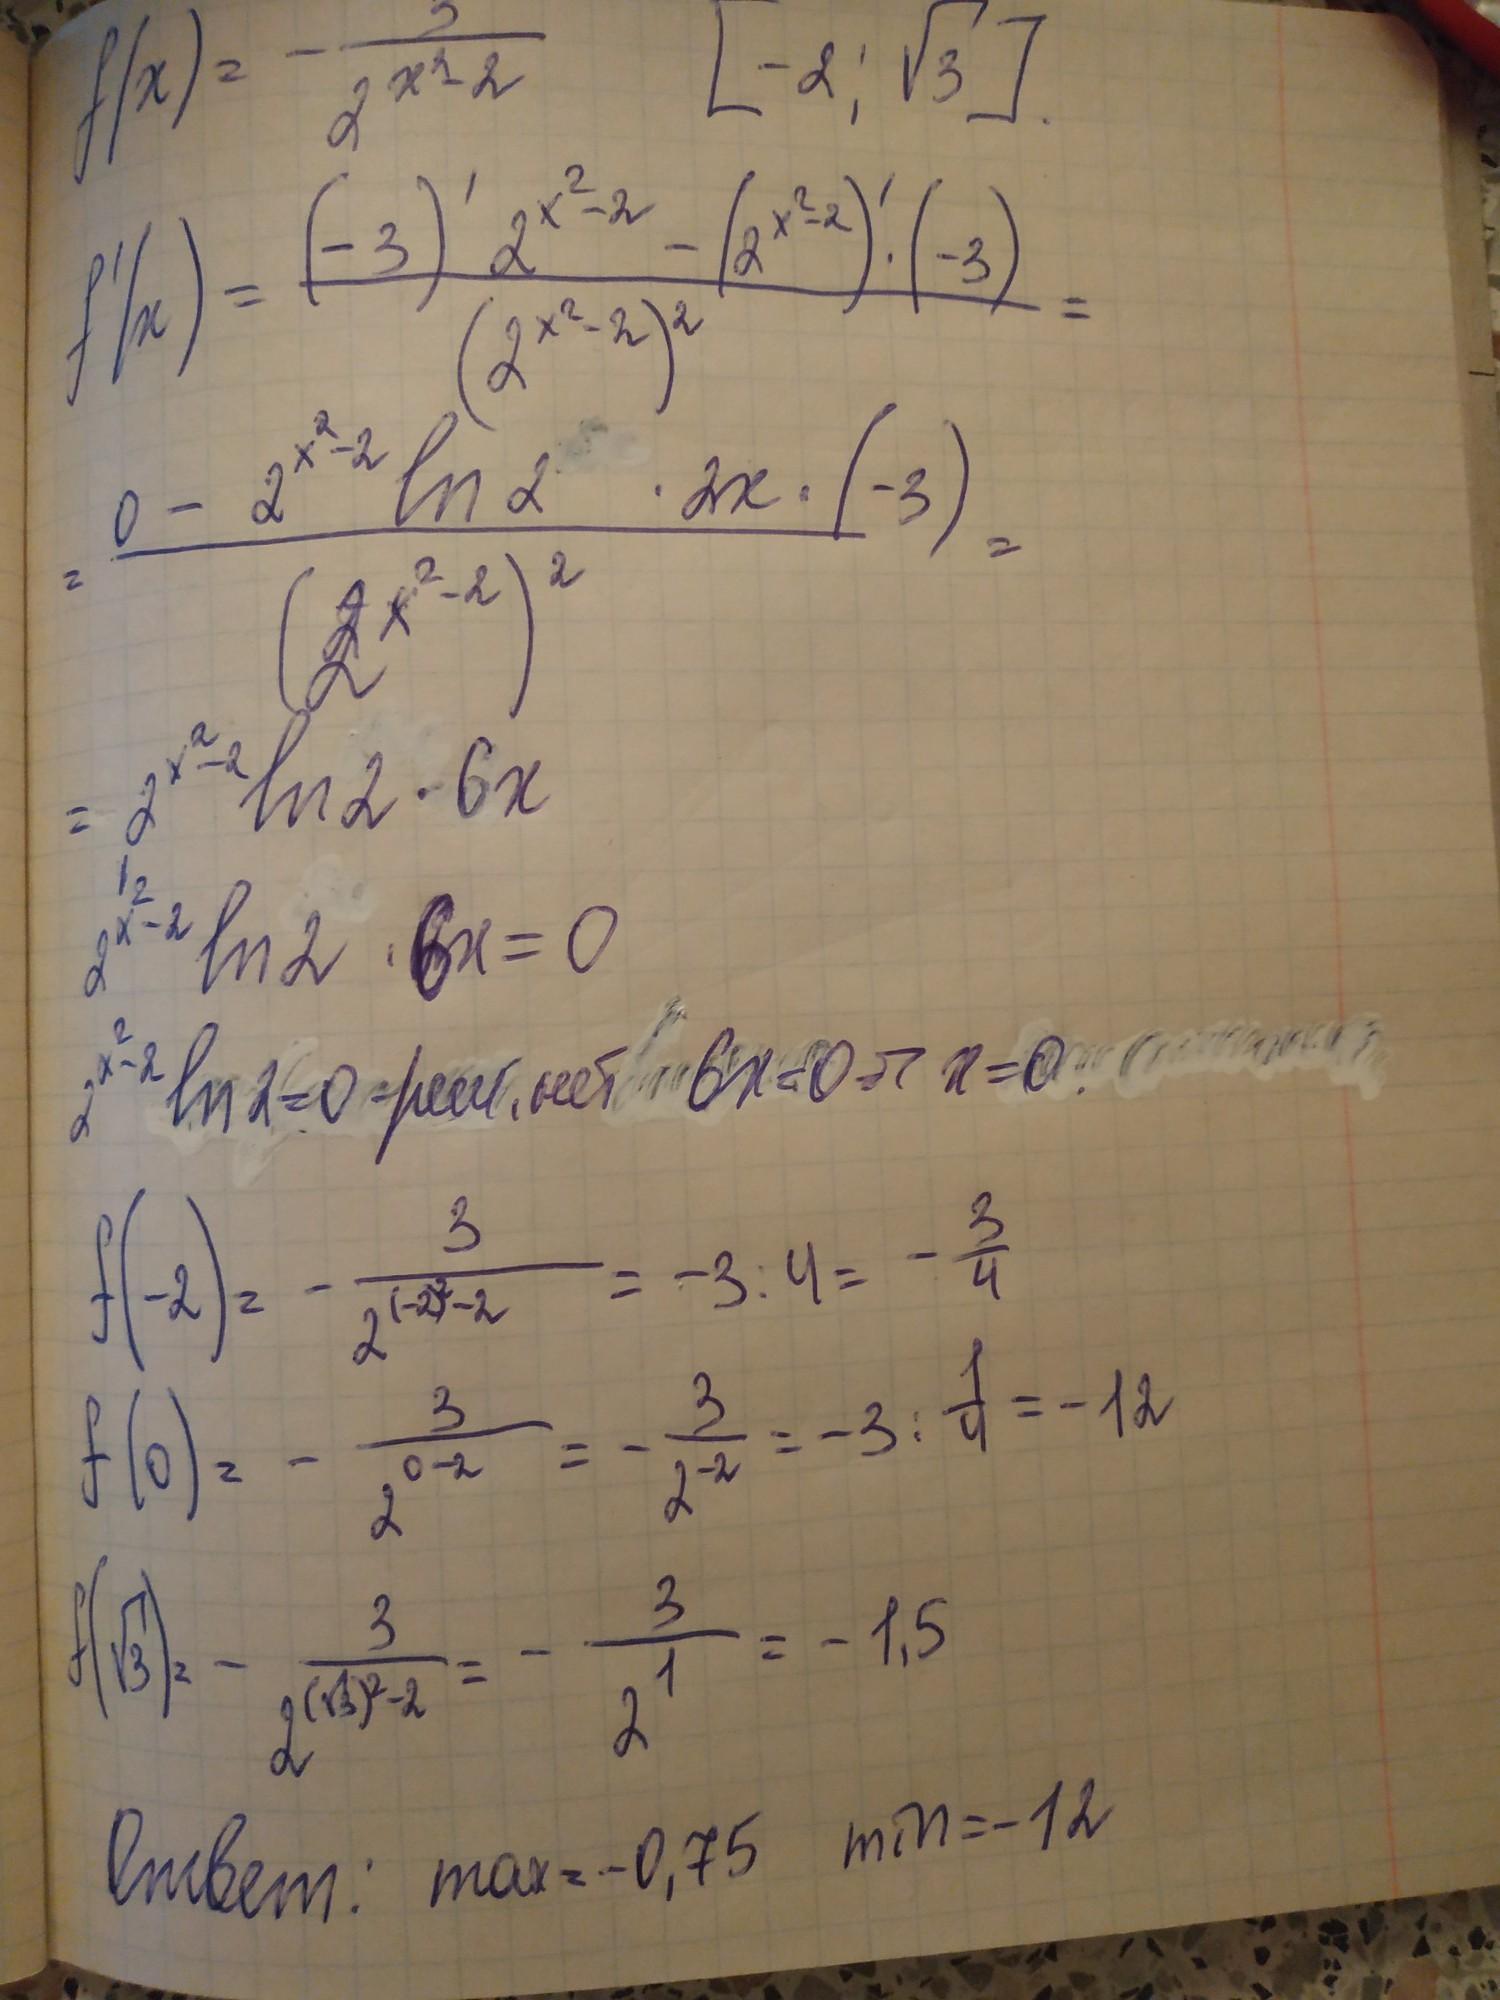 f(x) = - 3/2^(x²-2) [-2; √3].
f'(x) = ((-3)' 2^(x²-2) - (2^(x²-2))' · (-3))/(2^(x²-2))² =
= (0 - 2^(x²-2) ln 2 · 2x · (-3))/(2^(x²-2))² =
= 2^(x²-2) ln 2 · 6x
2^(x²-2) ln 2 · 6x = 0
2^(x²-2) ln 2 = 0 - реш. нет 6x = 0 => x = 0.
f(-2) = - 3/2^((-2)²-2) = -3 : 4 = - 3/4
f(0) = - 3/2^(0-2) = - 3/2^(-2) = -3 : 1/4 = -12
f(√3) = - 3/2^((√3)²-2) = - 3/2^1 = -1,5
Ответ: max = -0,75 min = -12